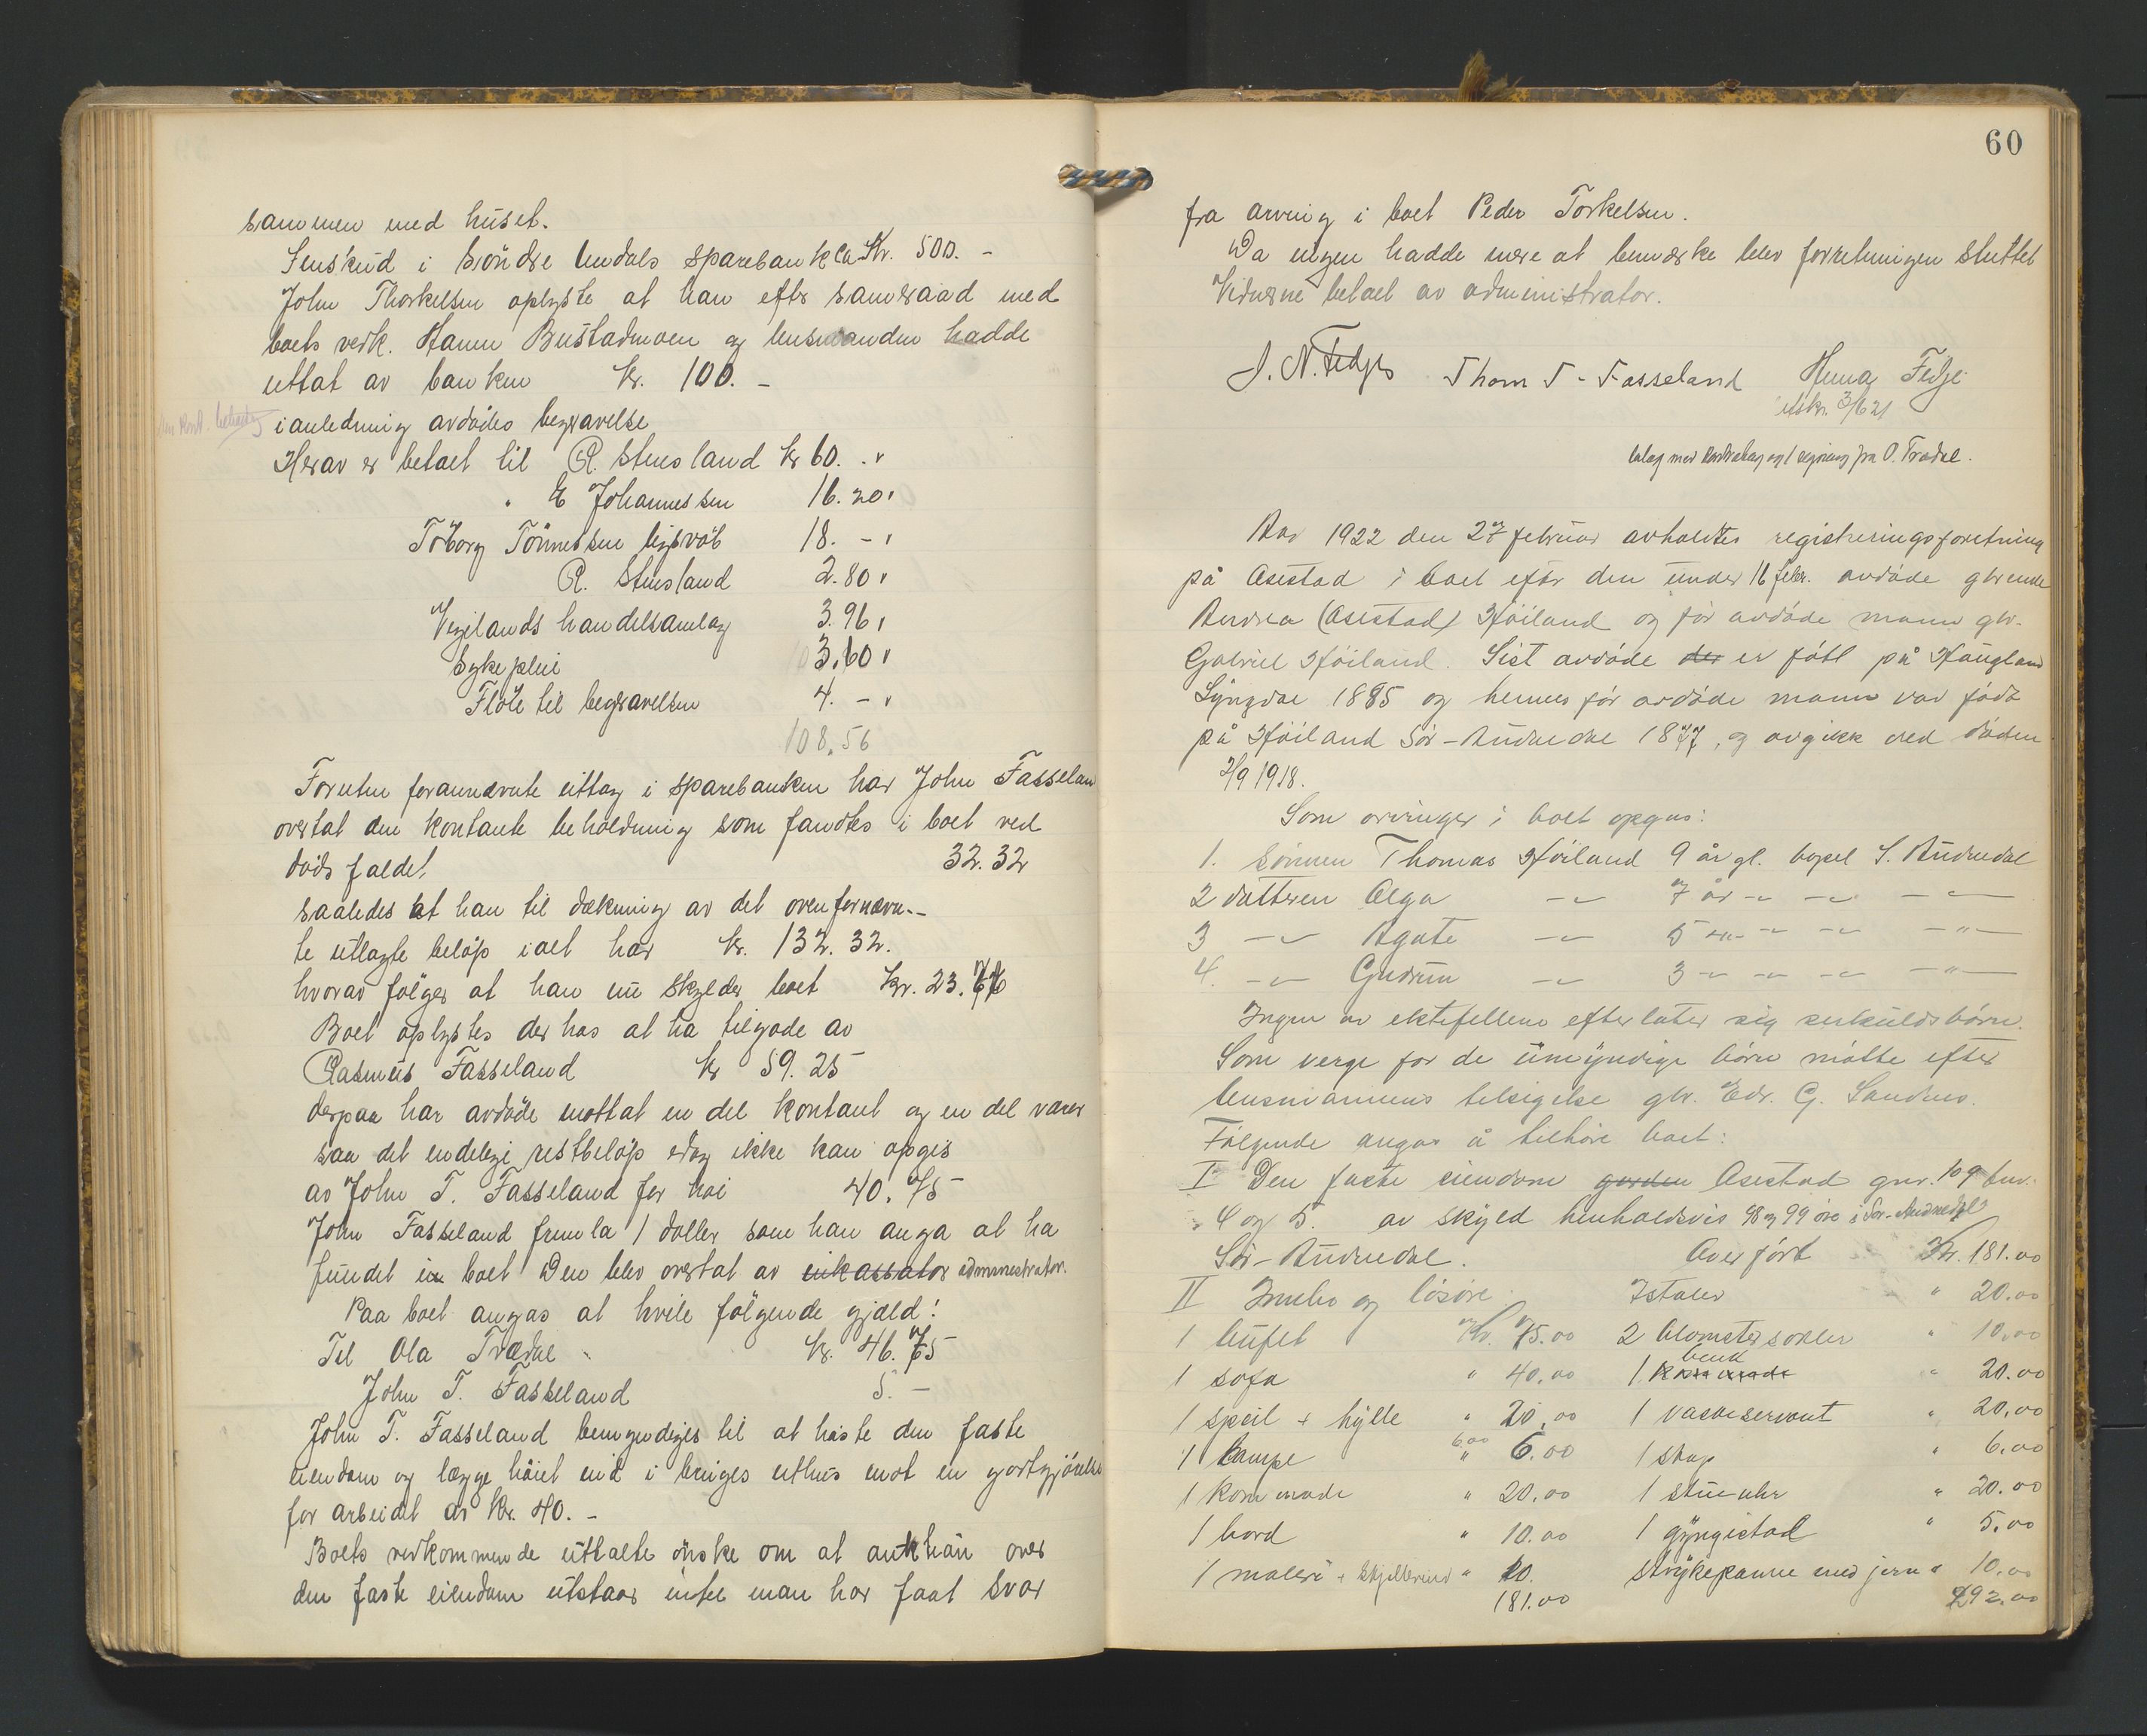 sammen med huset.
Indskud i Söndre Undals Sparebank ca Kr. 500. -
John Thorkelsen oplyste at han efter samraad med
boets vedk. Hanna Bustadmoen og lensmanden hadde
uttat av banken kr. 100. -
ianledning avdødes begravelse
Herav er betalt til R. Stensland kr 60. "
" E Johannessen 16.20 "
Töborg Tönnessen ligsvøb 18. - "
R. Stensland 2.80 "
Vigelands handelsamlag 3.96 "
Sykepleie 3.60 "
Fløte til begravelsen 4. - "
108.56
Foruten forannævnte uttag i sparebanken har John Fasseland
overtat den kontante beholdning som fandtes i boet ved
dødsfaldet 32.32
saaledes at han til dækning av det ovenfornævn-
te utlagte beløp ialt har kr. 132.32.
hvorav følger at han nu skylder boet kr. 23.76
Boet oplystes derhos at ha tilgode av
Rasmus Fasseland kr 59.25
derpaa har avdøde mottat en del kontant og en del varer
saa det endelige restbeløp idag ikke kan opgis
av John T. Fasseland for høi 40.75
John Fasseland fremla 1 daller som han anga at ha
fundet i boet Den blev overtat av inkassator administrator.
Paa boet angas at hvile følgende gjæld:
Til Ola Trædal kr. 46.75
John T. Fasseland 5. -
John T. Fasseland bemyndiges til at høste den faste
eiendom og lægge høiet ind i eget uthus mot en godtgjørelse
for arbeidet av Kr. 40. -
Boets vedkommende uttalte ønske om at auktion over
den faste eiendom utstaar indtil man har faat svar
60
fra arving i boet Peder Torkelsen.
Da ingen hadde mere at bemærke blev forretningen sluttet
Vidnerne betalt av administrator.
J. N. Fedje Thom T. Fasseland Hema Fedje
utskr. 3/6 21
bilag med Kontrabog og 1 regning fra O. Trædal.
Aar 1922 den 27 februar avholdtes registreringsforetning
på Asestad i boet efter den under 16 febr. avdøde gbrenke
Andrea (Asestad) Høiland og før avdøde mann gbr.
Gabriel Høiland. Sist avdøde der er født på Haugland
Lyngdal 1885 og hennes før avdøde mann var født
på Høiland Sør-Audnedal 1877, og avgikk ved døden
2/9 1918.
Som arvinger i boet opgas:
1. Sønnen Thomas Høiland 9 år gl. bopel S. Audnedal
2 datteren Olga -"- 7 år -"- -"- -"-
3 -"- Agate -"- 5 -"- -"- -"- -"-
4. -"- Gudrun -"- 3 -"- -"- -"- -"-
Ingen av ektefellene efterlater sig serkuldsbørn.
Som verge for de umyndige børn møtte efter
lensmannens tilsigelse gbr. Edv. G. Sandnes.
Følgende angas å tilhøre boet:
I Den faste eiendom garden Asestad gnr. 109 bnr.
4 og 5. av skyld henholdsvis 98 og 99 øre i Sør-Audnedal
Sør-Audnedal. Overført Kr. 181.00
II Innbo og løsøre. 7 stoler " 20.00
1 buffet Kr. 75.00 2 blomstersøiler " 10.00
1 sofa " 40.00 1 kommode benk " 20.00
1 speil + hylle " 20.00 1 vaskeservant " 20.00
1 lampe 6.00 " 6.00 1 skap " 6.00
1 kommode " 20.00 1 stueuhr " 20.00
1 bord " 10.00 1 gyngestol " 5.00
1 maleri + skjilleri " 10. strykepanne med jern " 10.00
181.00 292.00